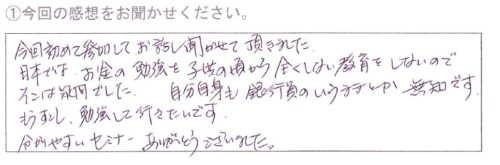 ①今回の感想をお聞かせください。
今回初めて参加してお話し聞かせて頂きました。
日本では、お金の勉強を子供の頃から全くしない教育をしないので
そこは疑問でした。 自分自身も銀行員のいうままとか無知です。
もう少し、勉強して行きたいです。
分かりやすいセミナー ありがとうございました。